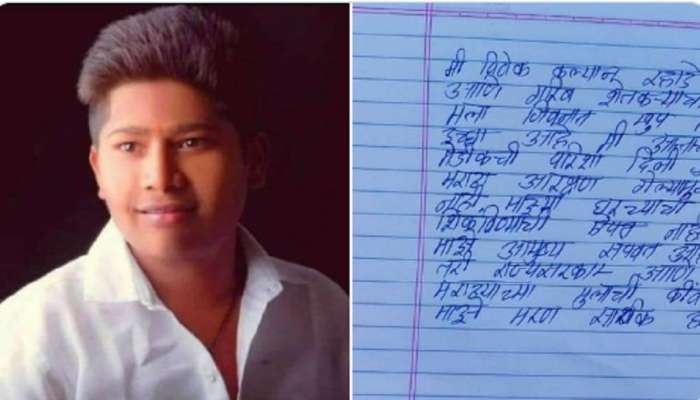 मी विवेक कल्याण रहाडे
आणि गरिब शेतकऱ्याचा
मला जिवनात खुप
इच्छा आहे मी
मेडीकची परिक्षा दिली
मराठा आरक्षण गेल्यामुळे
नाही माझ्या घरच्याची
शिकविण्याची ऐपत नाही
माझे आयुष्य संपवत आहे
तरी राज्यसरकार आणि
मराठ्याच्या मुलाची
माझे मरण सार्थक